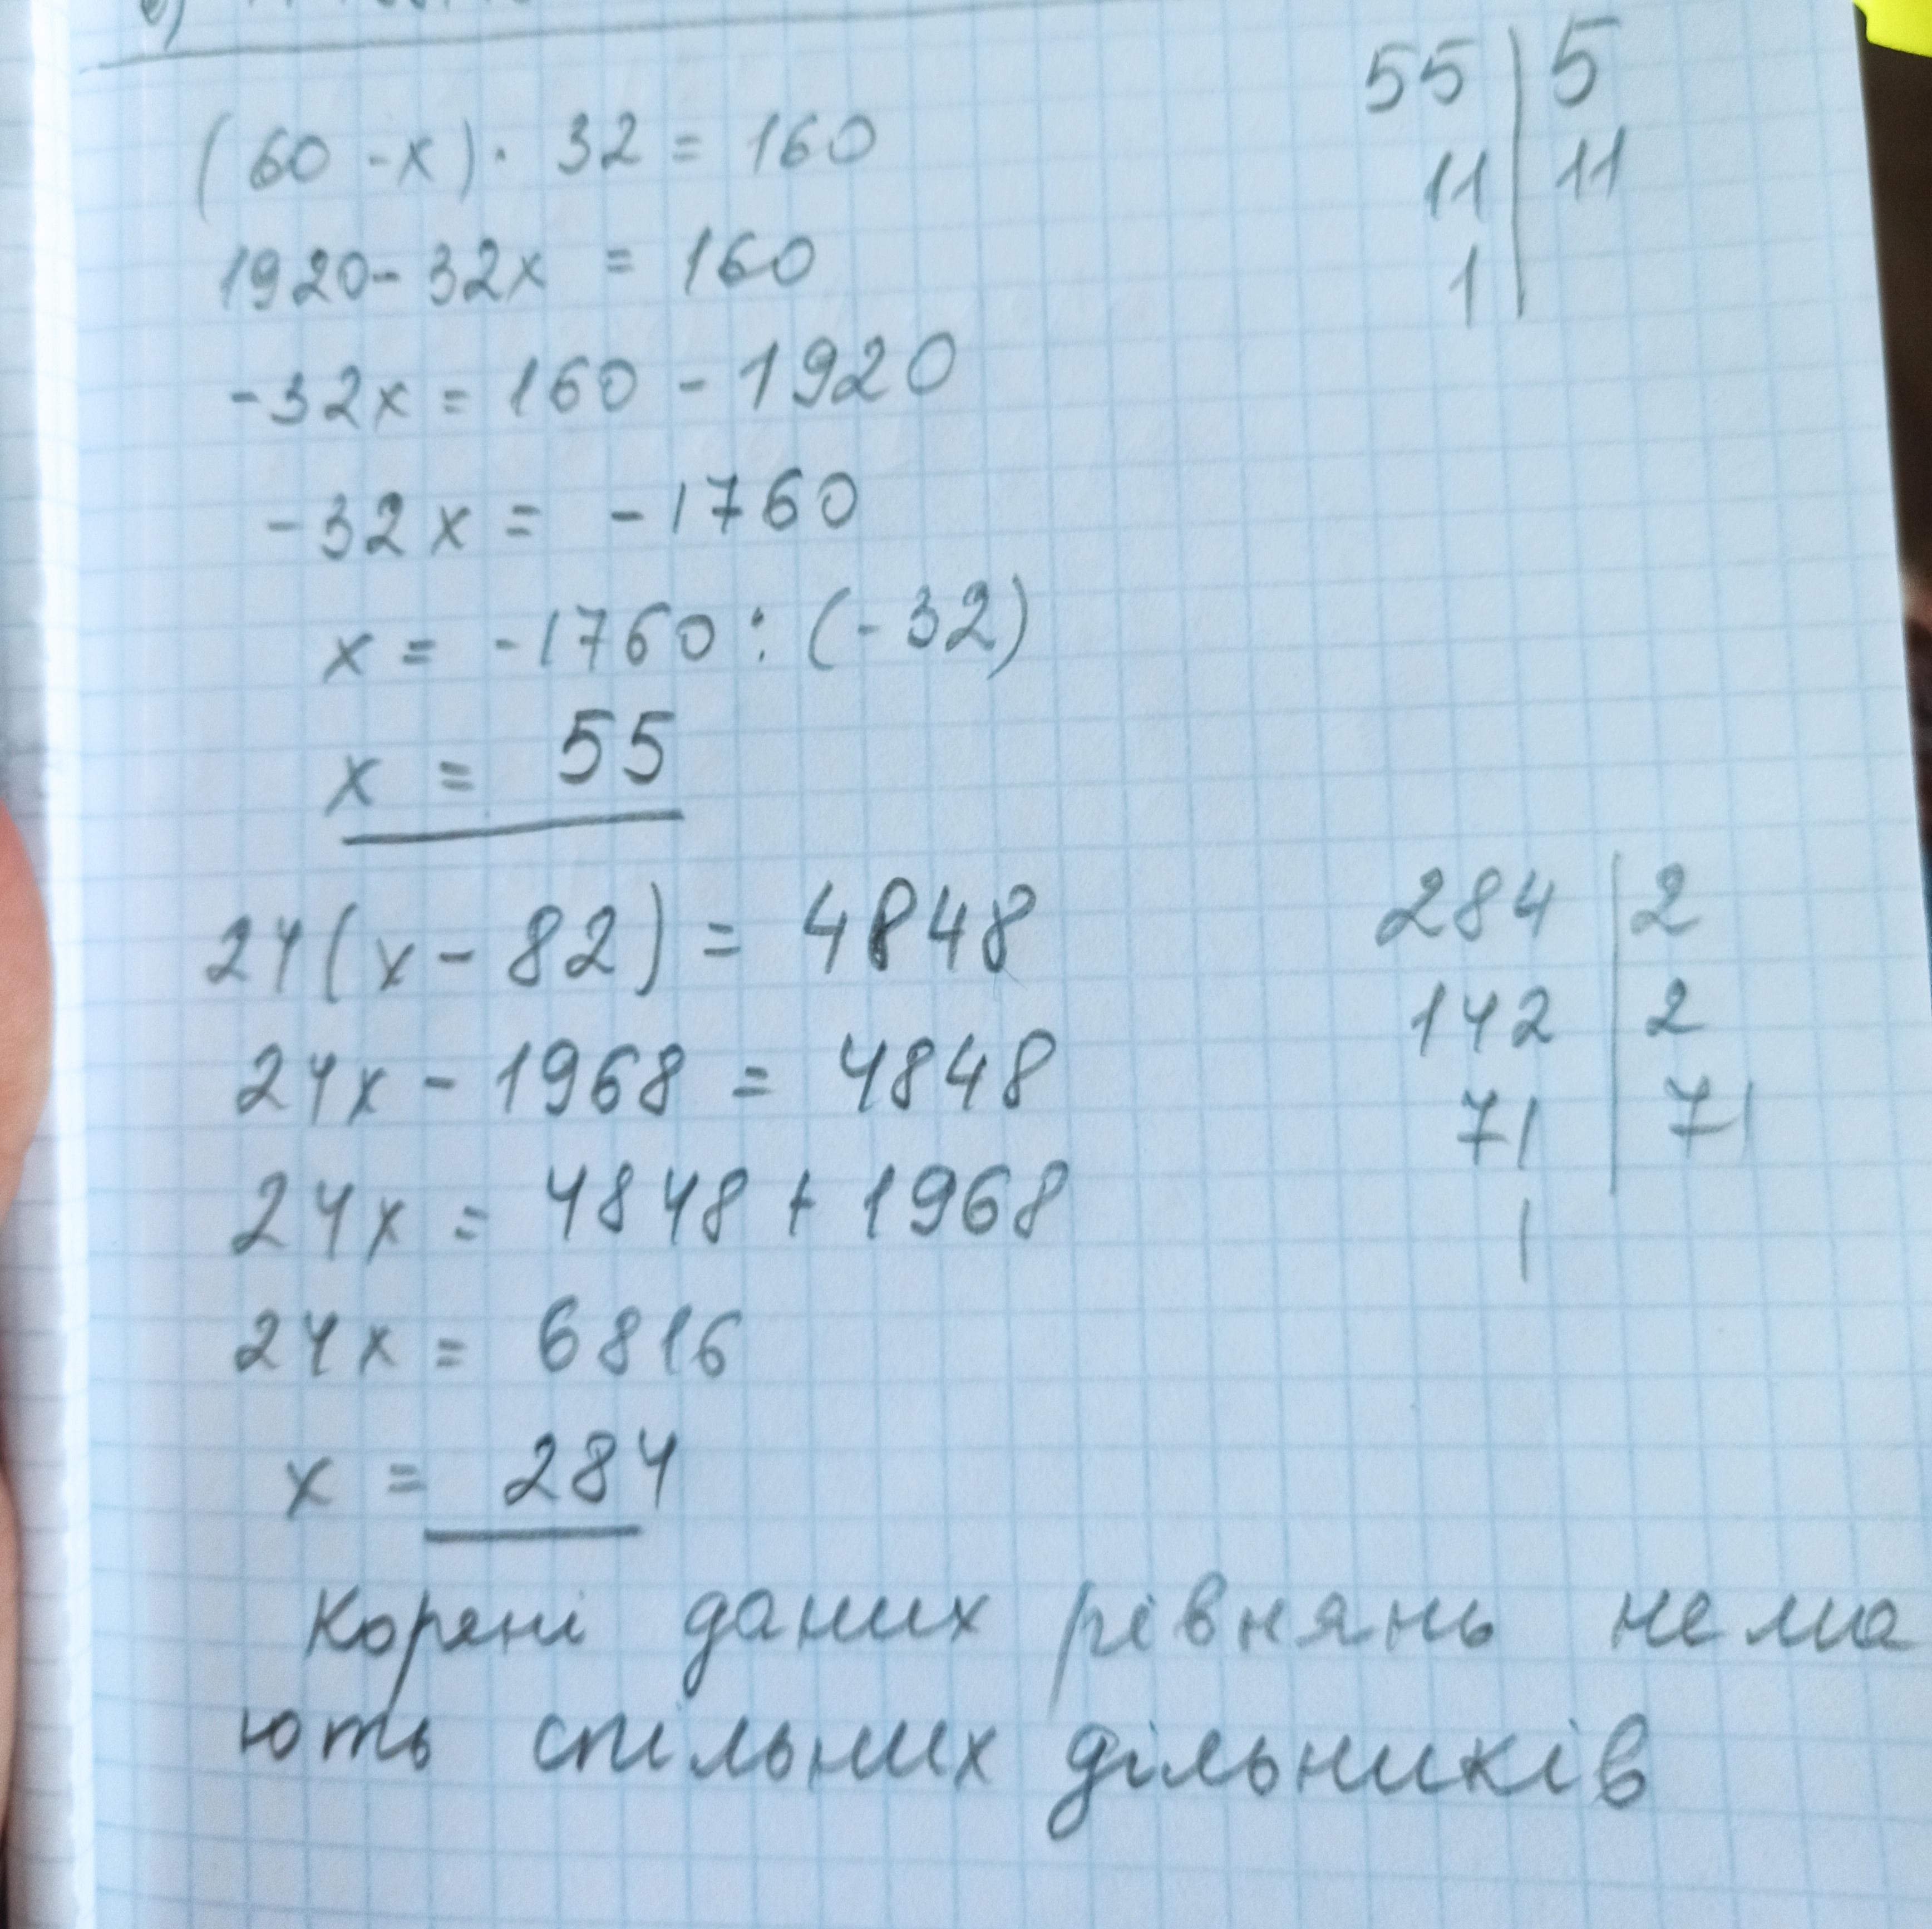 (60 - x) · 32 = 160
1920 - 32x = 160
-32x = 160 - 1920
-32x = -1760
x = -1760 : (-32)
x = 55
55 | 5
11 | 11
1
24(x - 82) = 4848
24x - 1968 = 4848
24x = 4848 + 1968
24x = 6816
x = 284
284 | 2
142 | 2
71 | 71
1
Корені даних рівнянь не ма
ють спільних дільників